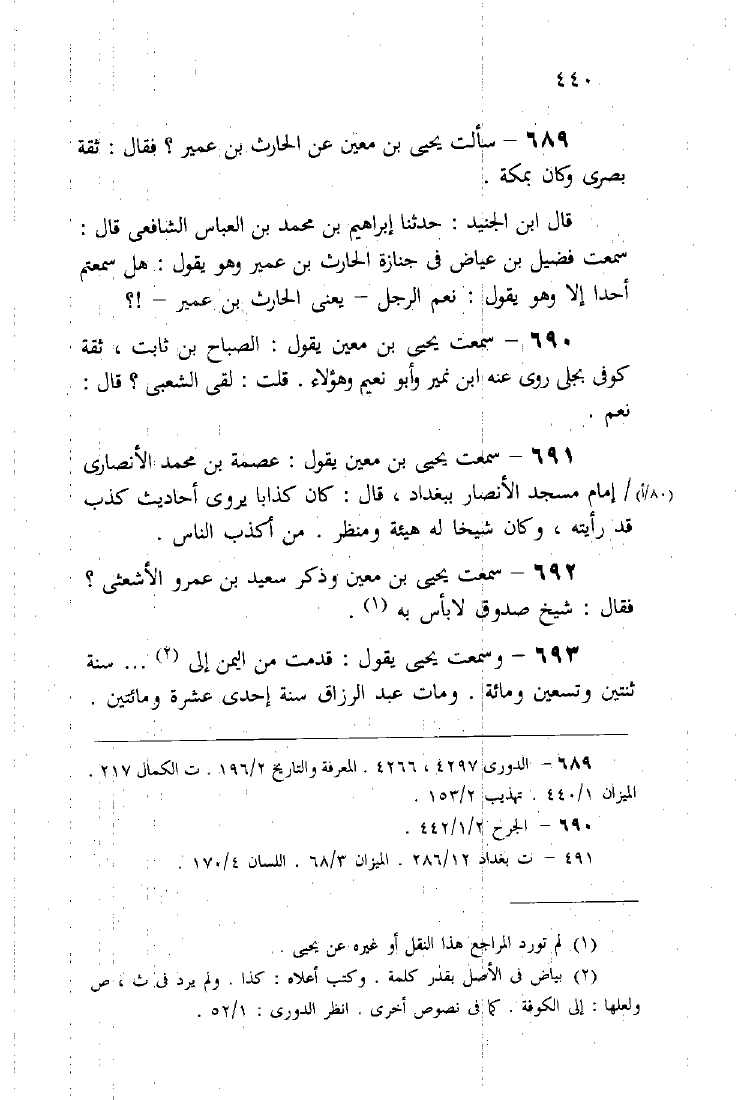 ٤٤٠
٦٨٩ – سألت يحيى بن معين عن الحارث بن عمير ؟ فقال : ثقة
بصرى وكان بمكة .
قال ابن الجنيد : حدثنا إبراهيم بن محمد بن العباس الشافعى قال :
سمعت فضيل بن عياض فى جنازة الحارث بن عمير وهو يقول : هل سمعتم
أحدا إلا وهو يقول : نعم الرجل – يعنى الحارث بن عمير – !؟
٦٩٠ – سمعت يحيى بن معين يقول : الصباح بن ثابت ، ثقة
كوفى بجلى روى عنه ابن نمير وأبو نعيم وهؤلاء . قلت : لقى الشعبى ؟ قال :
نعم .
٦٩١ – سمعت يحيى بن معين يقول : عصمة بن محمد الأنصارى
(٨٠/أ) / إمام مسجد الأنصار ببغداد ، قال : كان كذابا يروى أحاديث كذب
قد رأيته ، وكان شيخا له هيئة ومنظر . من أكذب الناس .
٦٩٢ – سمعت يحيى بن معين وذكر سعيد بن عمرو الأشعثى ؟
فقال : شيخ صدوق لابأس به (١) .
٦٩٣ – وسمعت يحيى يقول : قدمت من اليمن إلى (٢) ... سنة
ثنتين وتسعين ومائة . ومات عبد الرزاق سنة إحدى عشرة ومائتين .
٦٨٩ – الدورى ٤٢٩٧ ، ٤٢٦٦ . المعرفة والتاريخ ١٩٦/٢ . ت الكمال ٢١٧ .
الميزان ٤٤٠/١ . تهذيب ١٥٣/٢ .
٦٩٠ – الجرح ٤٤٢/١/٢ .
٤٩١ – ت بغداد ٢٨٦/١٢ . الميزان ٦٨/٣ . اللسان ١٧٠/٤ .
(١) لم تورد المراجع هذا النقل أو غيره عن يحيى .
(٢) بياض فى الأصل بقدر كلمة . وكتب أعلاه : كذا . ولم يرد فى ث ، ص
ولعلها : إلى الكوفة . كما فى نصوص أخرى . انظر الدورى : ٥٢/١ .